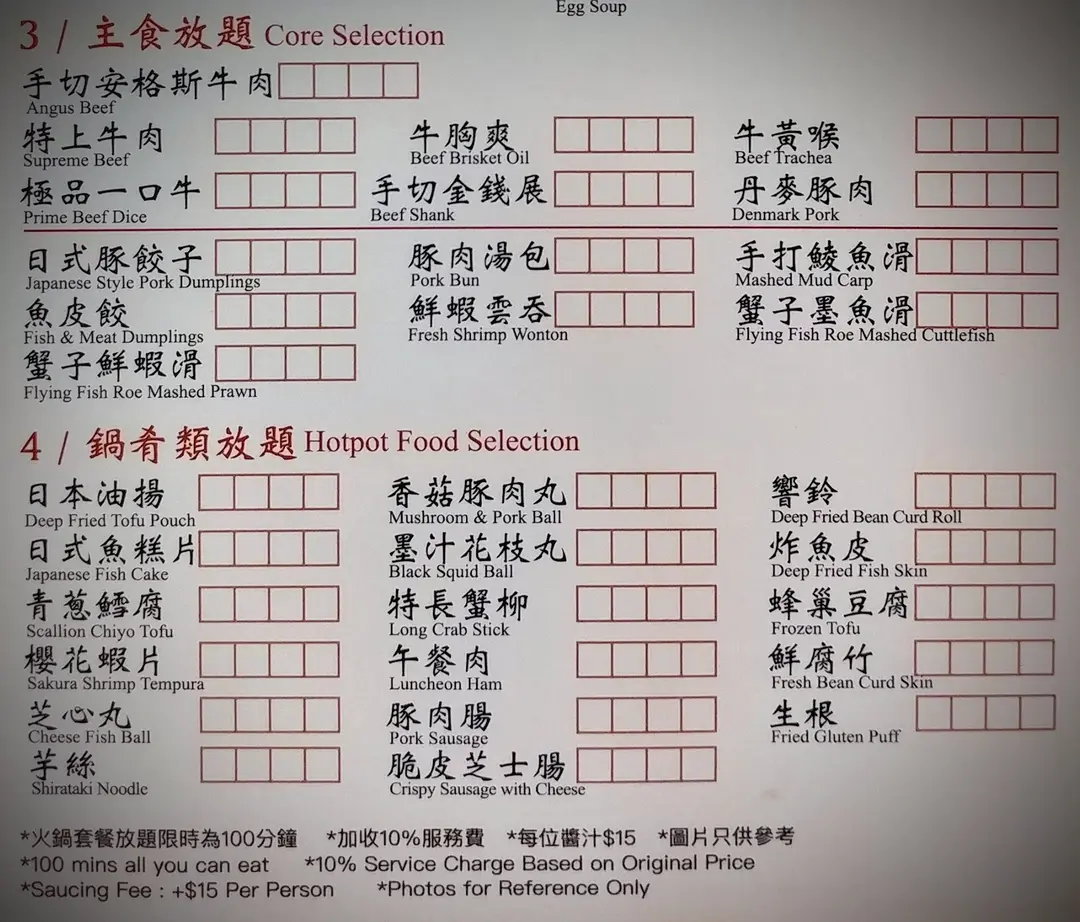 Egg Soup
3 / 主食放題 Core Selection
手切安格斯牛肉
Angus Beef
特上牛肉 牛胸爽 牛黃喉
Supreme Beef Beef Brisket Oil Beef Trachea
極品一口牛 手切金錢展 丹麥豚肉
Prime Beef Dice Beef Shank Denmark Pork
日式豚餃子 豚肉湯包 手打鯪魚滑
Japanese Style Pork Dumplings Pork Bun Mashed Mud Carp
魚皮餃 鮮蝦雲吞 蟹子墨魚滑
Fish & Meat Dumplings Fresh Shrimp Wonton Flying Fish Roe Mashed Cuttlefish
蟹子鮮蝦滑
Flying Fish Roe Mashed Prawn
4 / 鍋肴類放題 Hotpot Food Selection
日本油揚 香菇豚肉丸 響鈴
Deep Fried Tofu Pouch Mushroom & Pork Ball Deep Fried Bean Curd Roll
日式魚糕片 墨汁花枝丸 炸魚皮
Japanese Fish Cake Black Squid Ball Deep Fried Fish Skin
青葱鱈腐 特長蟹柳 蜂巢豆腐
Scallion Chiyo Tofu Long Crab Stick Frozen Tofu
櫻花蝦片 午餐肉 鮮腐竹
Sakura Shrimp Tempura Luncheon Ham Fresh Bean Curd Skin
芝心丸 豚肉腸 生根
Cheese Fish Ball Pork Sausage Fried Gluten Puff
芋絲 脆皮芝士腸
Shirataki Noodle Crispy Sausage with Cheese
*火鍋套餐放題限時為100分鐘 *加收10%服務費 *每位醬汁$15 *圖片只供參考
*100 mins all you can eat *10% Service Charge Based on Original Price
*Saucing Fee : +$15 Per Person *Photos for Reference Only